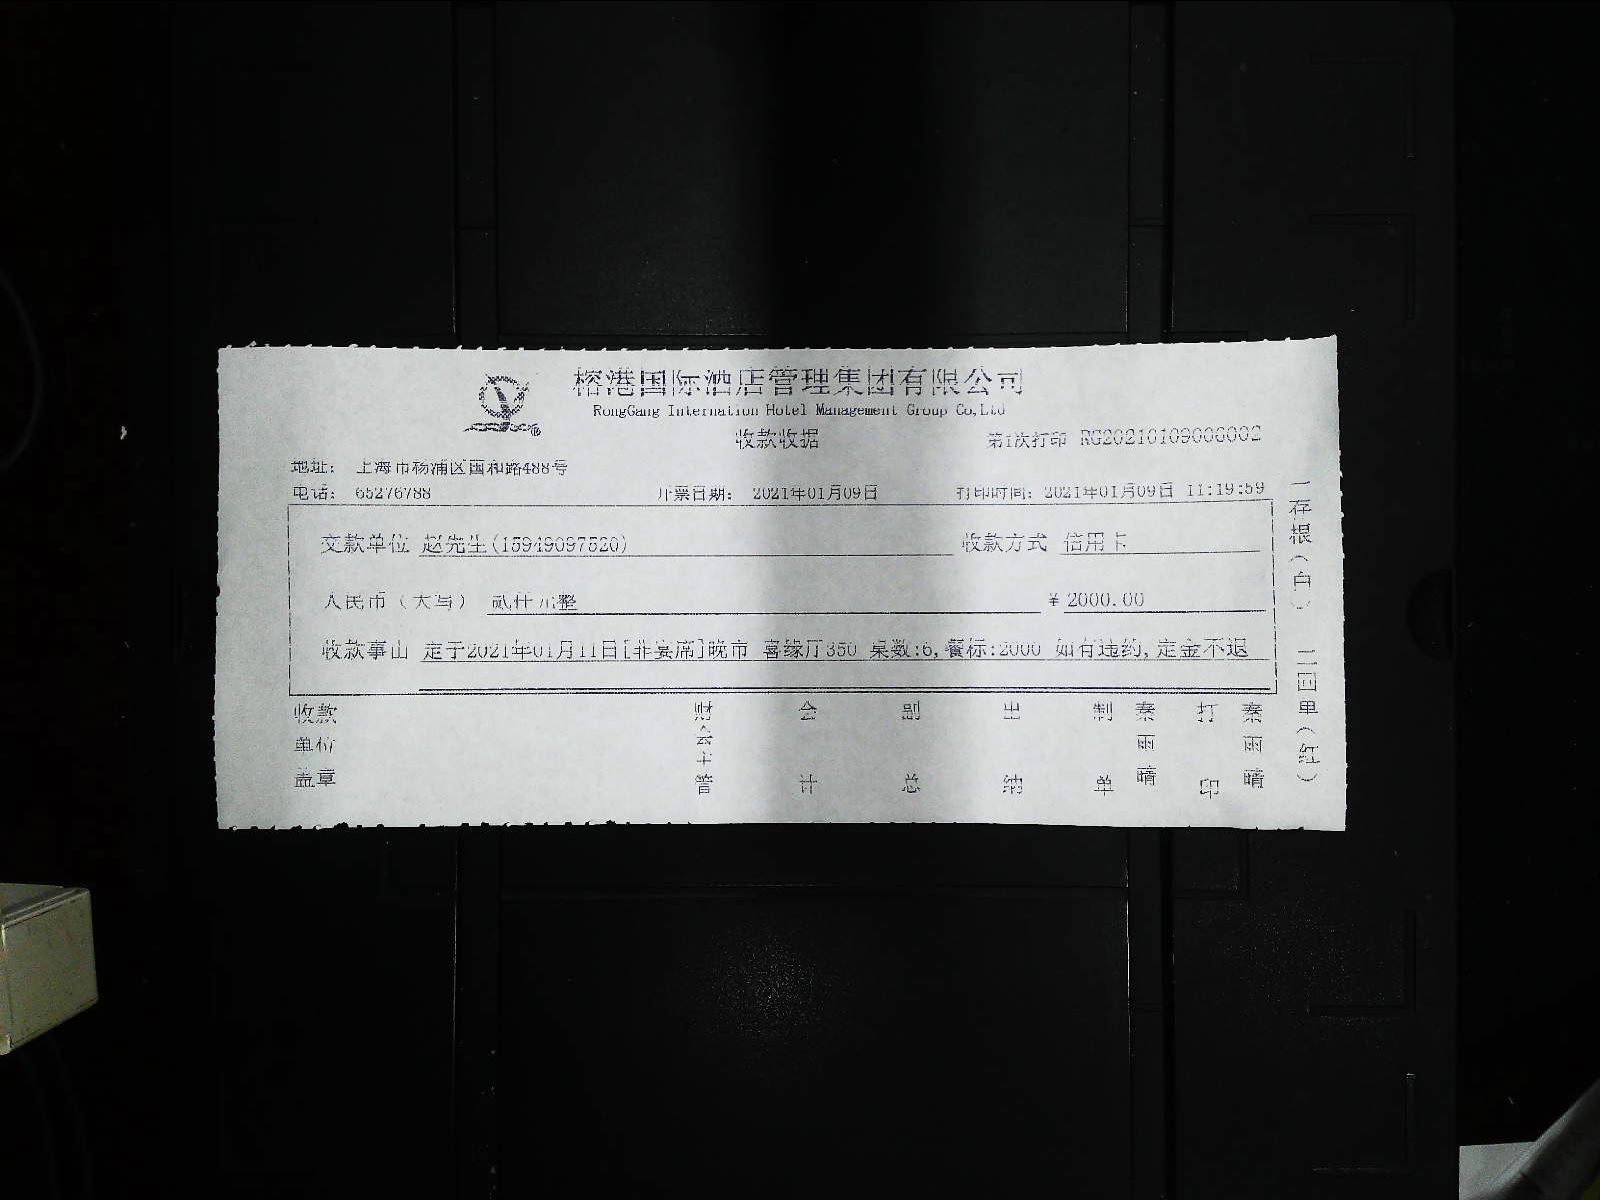 榕港国际酒店管理集团有限公司
RongGang Internation Hotel Management Group Co,Ltd
收款收据
第1次打印 RG20210109006002
地址： 上海市杨浦区国和路488号
电话： 65276788 开票日期： 2021年01月09日 打印时间：2021年01月09日 11:19:59
交款单位 赵先生(15949097520) 收款方式 信用卡
人民币（大写） 贰仟元整 ¥ 2000.00
收款事由 定于2021年01月11日[非宴席]晚市 喜缘厅350 桌数:6,餐标:2000 如有违约,定金不退
收款单位盖章 财会主管 会计 副总 出纳 制单 秦雨晴 打印 秦雨晴
一存根（白） 二回单（红）